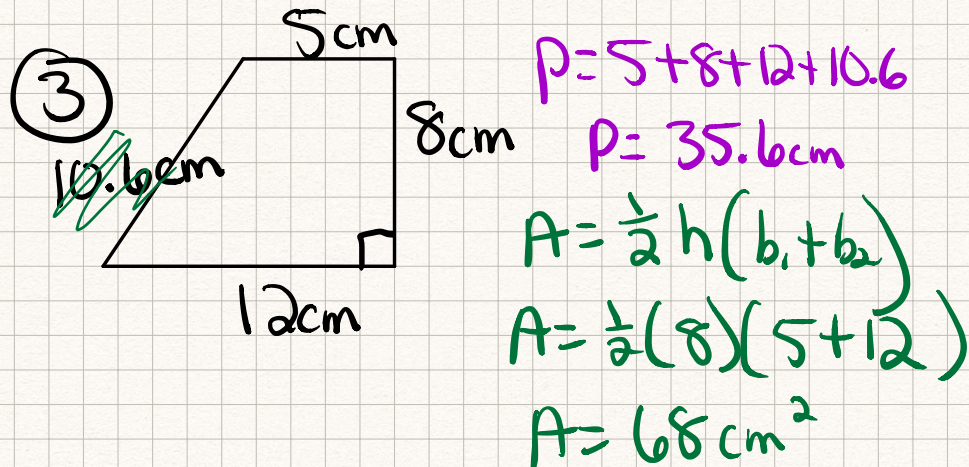 3
5cm
8cm
10.6cm
12cm
P=5+8+12+10.6
P= 35.6cm
A= ½ h(b₁+b₂)
A= ½(8)(5+12)
A= 68 cm²